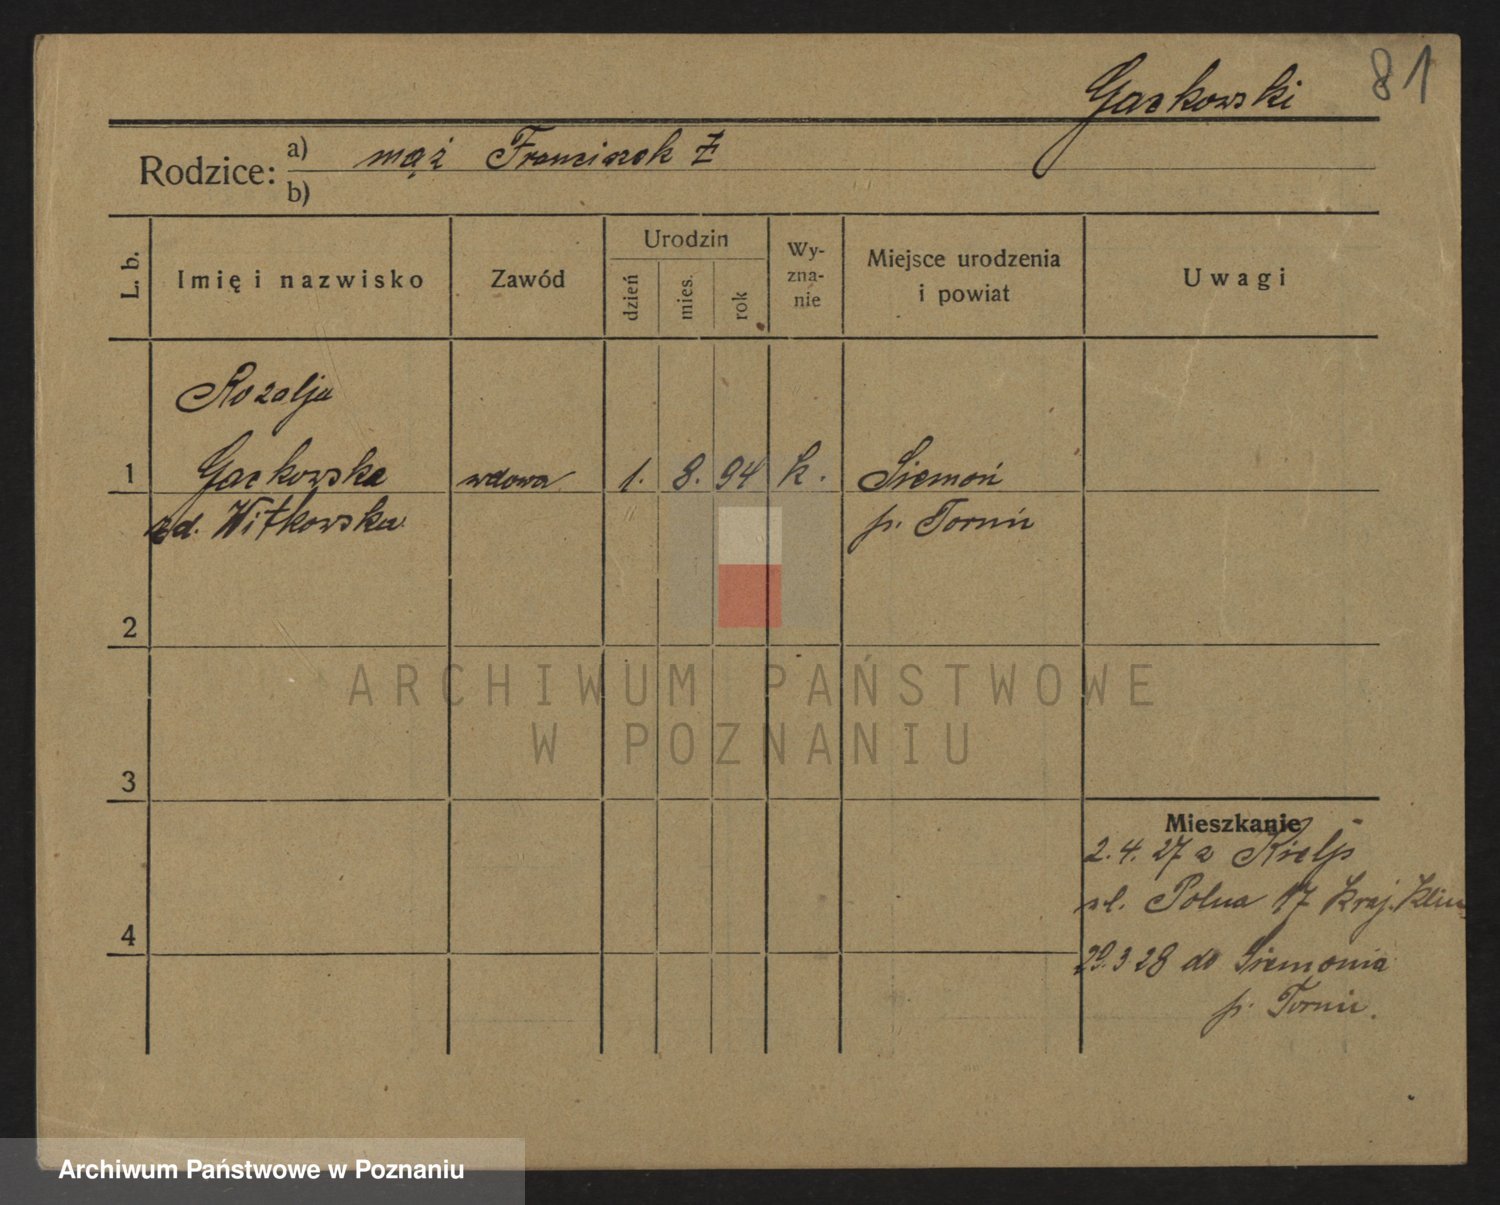 Gackowski 81
Rodzice: a) mąż Franciszek Ż
b)
L. b. Imię i nazwisko Zawód Urodzin dzień mies. rok Wyznanie Miejsce urodzenia i powiat Uwagi
Rozalja
1 Gackowska wdowa 1. 8. 94 k. Siemoń
zd. Witkowska p. Toruń
2
ARCHIWUM PAŃSTWOWE
W POZNANIU
3
Mieszkanie
2. 4. 27 z
ul. Polna 17
4
29.3 28 do Siemonia
p. Toruń.
Archiwum Państwowe w Poznaniu